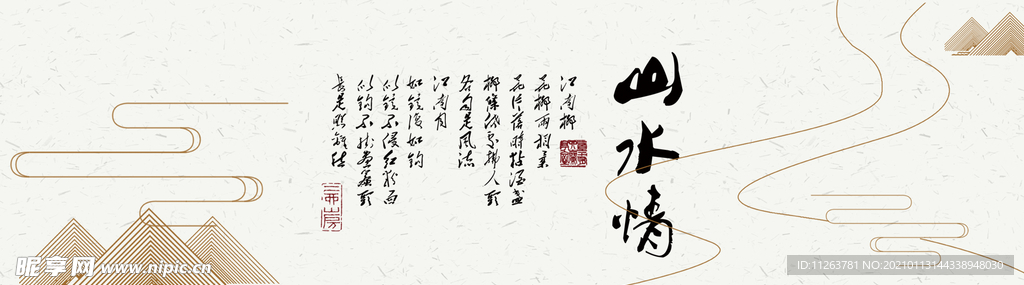 山水情
江南柳
花柳兩相柔
花片落時粘酒盞
柳條低處拂人頭
各自是風流
江南月
如鏡復如鉤
似鏡不侵紅粉面
似鉤不掛畫簾頭
長是照離
昵享网 www.nipic.cn
ID:11263781 NO:20210113144338948030